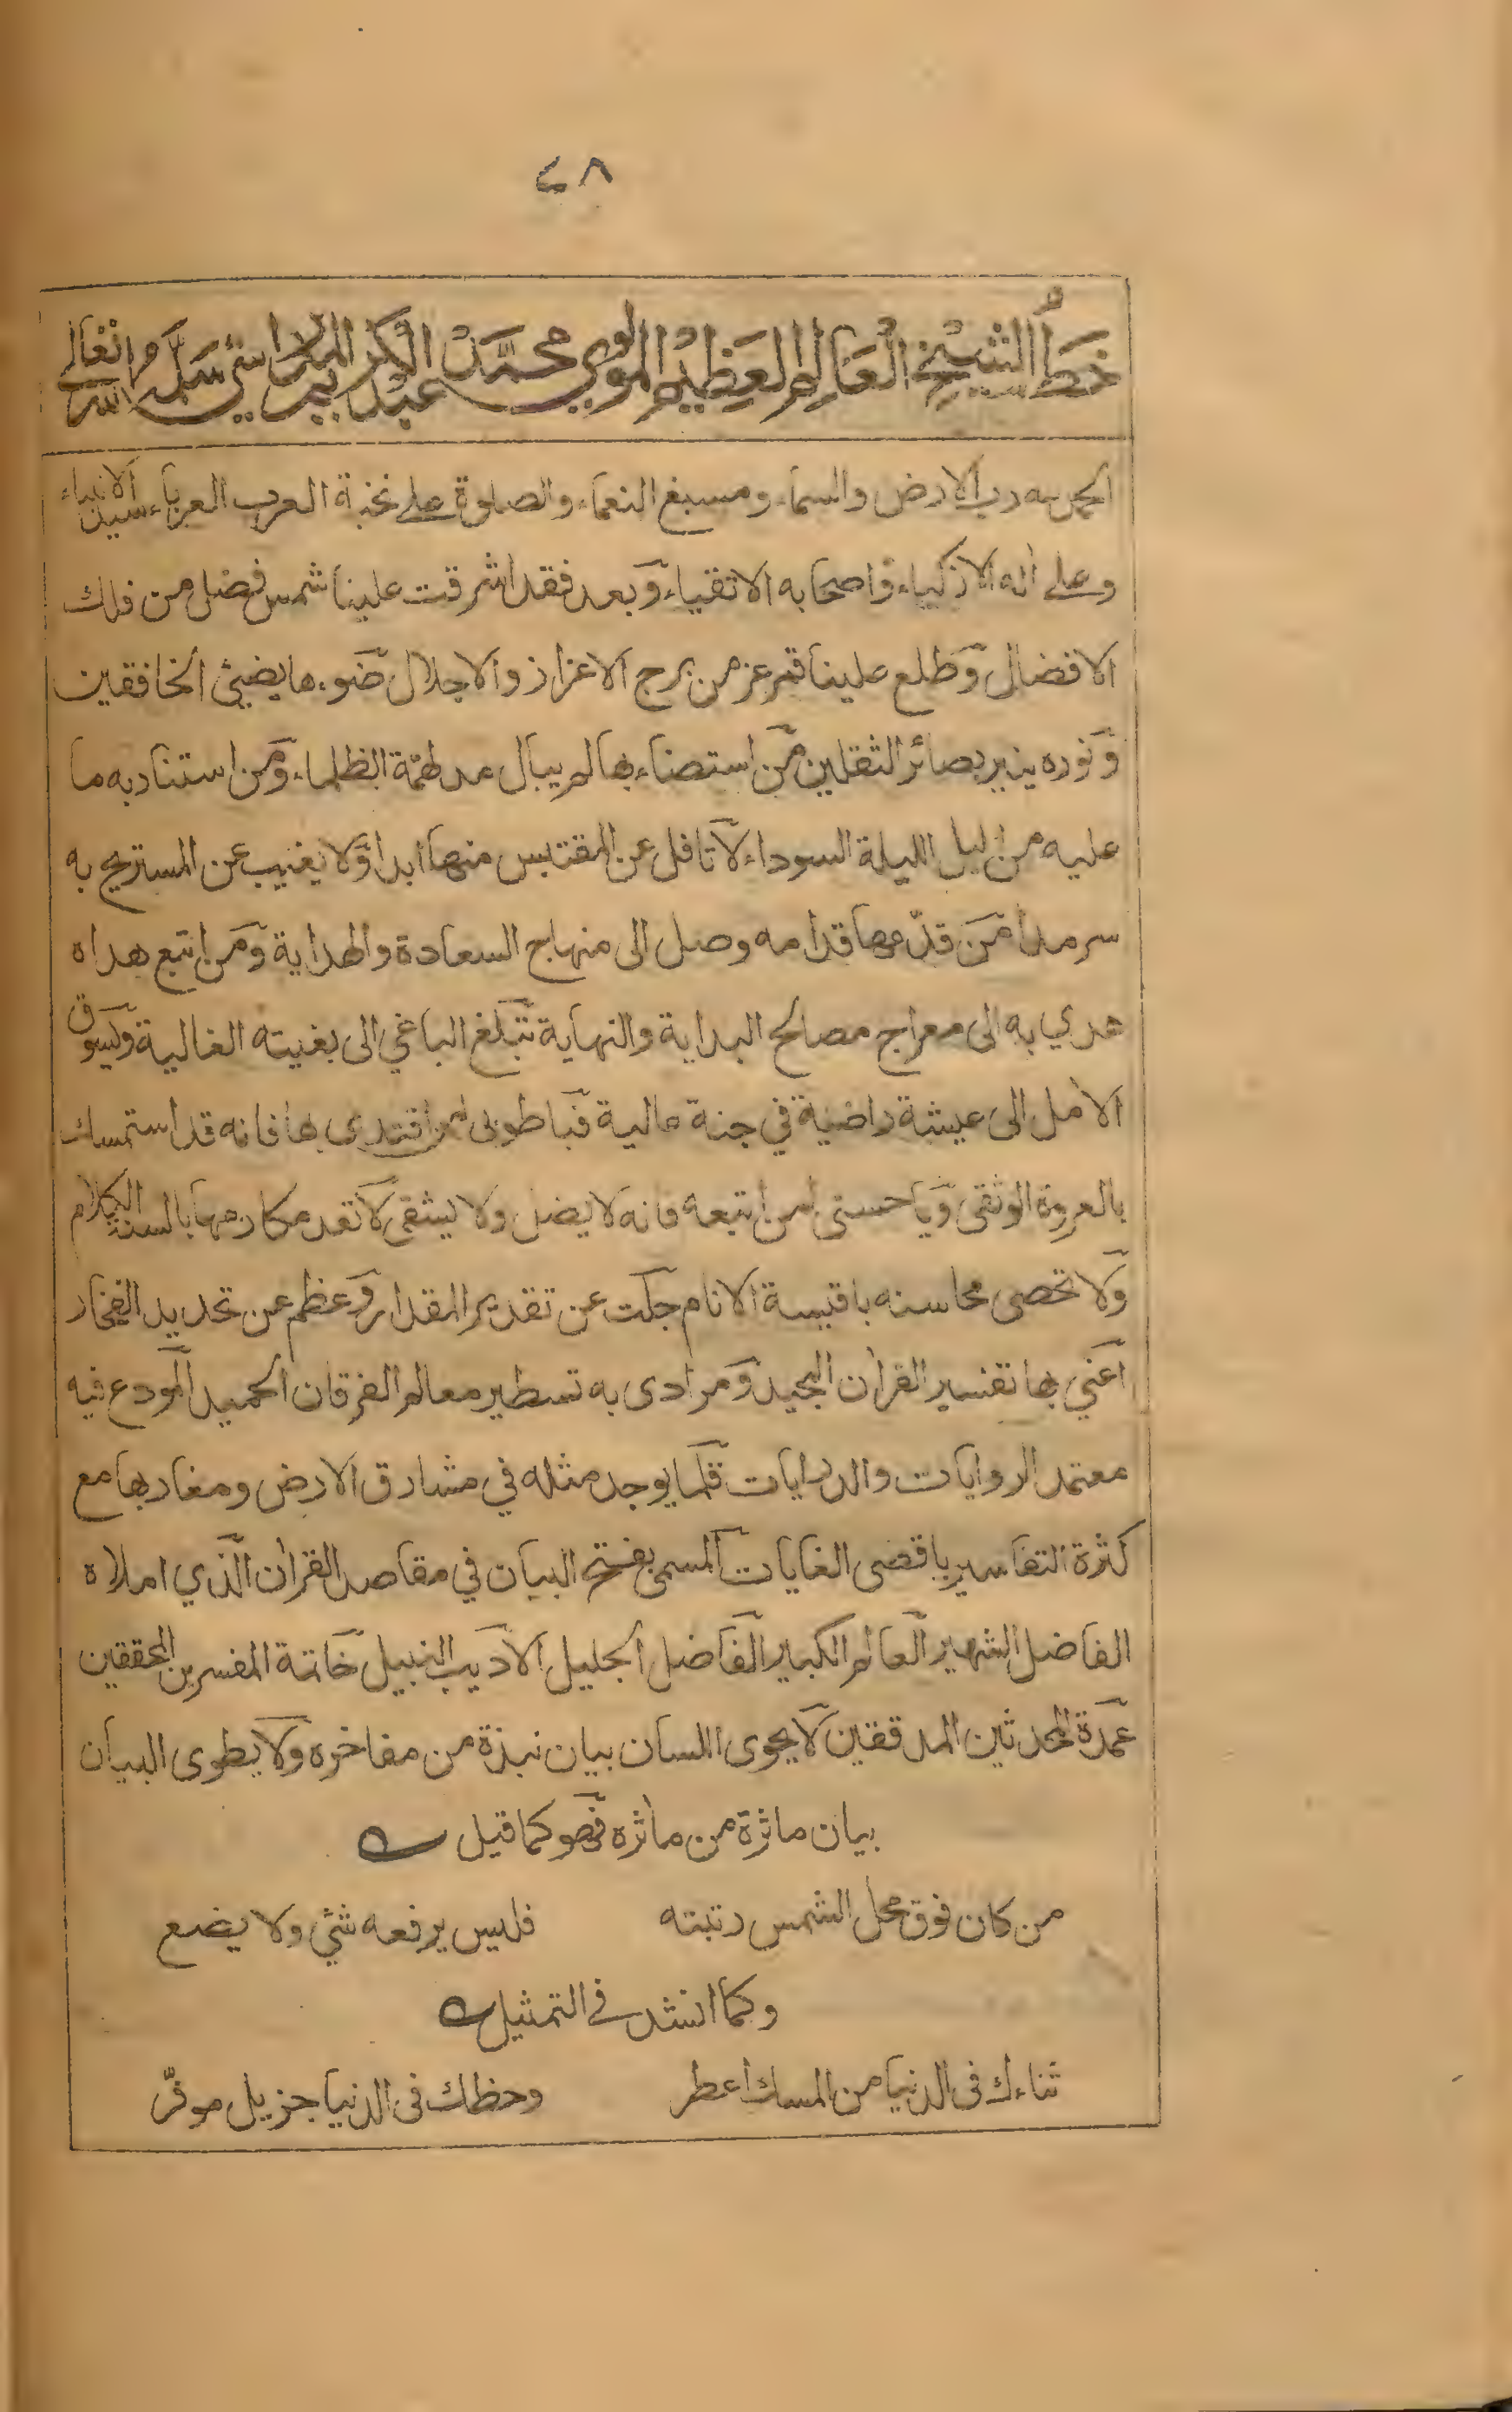 ٤٨
خط الشيخ العالم العظيم المولوي محمد عبد الكريم المدراسي سلمه الله تعالى
الحمد لله رب الارض والسماء ومسبغ النعماء والصلوة على نخبة العرب العرباء سيد الانبياء
وعلى اٰله الاذكياء واصحابه الاتقياء وبعد فقد اشرقت علينا شمس فضل من فلك
الافضال وطلع علينا قمر عز من برج الاعزاز والاجلال ضوءها يضيئ الخافقين
ونوره ينير بصائر الثقلين من استضاء بها لم يبال مدلهمة الظلماء ومن استنار به ما
عليه من ليل الليلة السوداء لا تافل عن المقتبس منها ابدا ولا يغيب عن المستريح به
سرمدا من قدّمها قدامه وصل الى منهاج السعادة والهداية ومن اتبع هداه
هدي به الى معراج مصالح البداية والنهاية تبلغ الباغي الى بغيته الغالية ويسوق
الاٰمل الى عيشة راضية في جنة عالية فيا طوبى لمن اقتدى بها فانه قد استمسك
بالعروة الوثقى ويا حسنى لمن اتبعه فانه لا يضل ولا يشقى لا تعد مكارمها بالسنة الكلام
ولا تحصى محاسنه باقيسة الانام جلت عن تقدير المقدار وعظم عن تحديد الفخار
اعني بها تفسير القراٰن المجيد ومرادى به تسطير معالم الفرقان الحميد المودع فيه
معتمد الروايات والدرايات قلما يوجد مثله في مشارق الارض ومغاربها مع
كثرة التفاسير باقصى الغايات المسمى بفتح البيان في مقاصد القراٰن الذي املاه
الفاضل الشهير العالم الكبير الفاضل الجليل الاديب النبيل خاتمة المفسرين المحققين
عمدة المحدثين المدققين لا يحوى اللسان بيان نبذة من مفاخره ولا يطوى البيان
بيان ماثرة من ماٰثره فهو كما قيل
من كان فوق محل الشمس رتبته فليس يرفعه شئ ولا يضع
وكما انشد في التمثيل
ثناءك فى الدنيا من المسك اعطر وحظك فى الدنيا جزيل موفّر